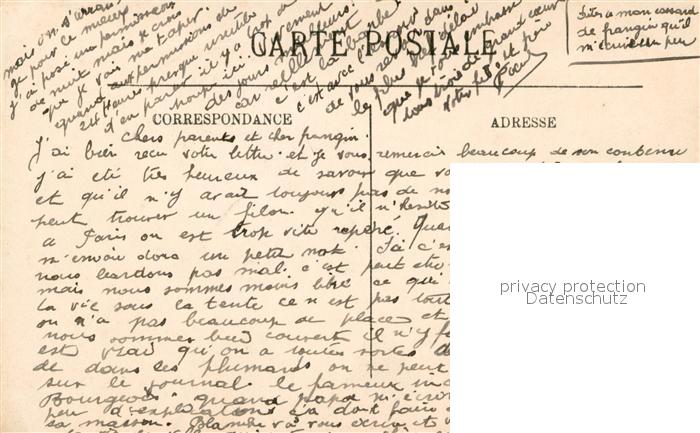 mais on s'arran
ge pour le mieux
j'ai posé un permission
de nuit mais je crois
que je vais me taper.
quand aux permissions de
24 heures presque inutile
d'en parler il y a trop de
pour ici
des jours meilleurs!
car
c'est la
c'est avec l'
de vous revoir dans
le plus bref délai
que je vous embrasse
tous trois de grand cœur
votre fils et frère
Dites a mon cossard
de frangin qu'il
m'écrive un peu
CARTE POSTALE
CORRESPONDANCE
ADRESSE
Chers parents et cher frangin.
J'ai bien reçu votre lettre et je vous remercie beaucoup de son contenu
j'ai été très heureux de savoir que vo
et qu'il n'y avait toujours pas de no
peut trouver un filon. qu'il n'hesite
a Paris on est trop vite repéré. Quan
m'envoie donc un petit mot. Ici c'es
nous bardons pas mal. c'est peut etre
mais nous sommes moins libre ce qui
la vie sous la tente ce n'est pas tout
on n'a pas beaucoup de place et
nous sommes bien couvert il n'y f
est vrai qu'on a toutes sortes d
de dans les plumards on ne peut
sur le journal le fameux in
Bourgeois. quand papa m'écrir
peu d'explications ça doit faire
sa maison. Blanche va vous écrire et v
privacy protection
Datenschutz